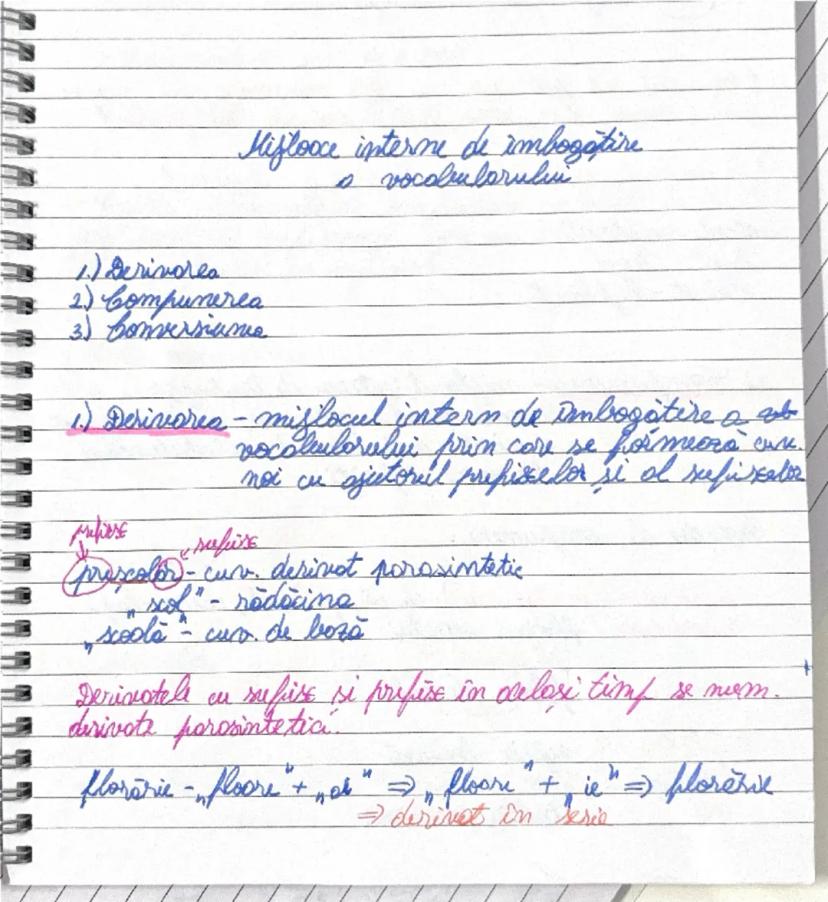 Mijloace interne de îmbogățire
a vocabularului
1.) Derivarea
2) Compunerea
3) Conversiunea
1.) Derivarea - mijlocul intern de îmbogățire a
vocabularului prin care se formează cuv.
noi cu ajutorul prefixelor și al sufixelor
prefixe
sufixe
preșcolar - cuv. derivat parasintetic
„școl" - rădăcina
„școală" - cuv. de bază
Derivatele cu sufixe și prefixe în același timp se num.
derivate parasintetici.
florărie - „floare" + „ar" ⇒ „floare" + „ie" ⇒ florărie
⇒ derivat în serie